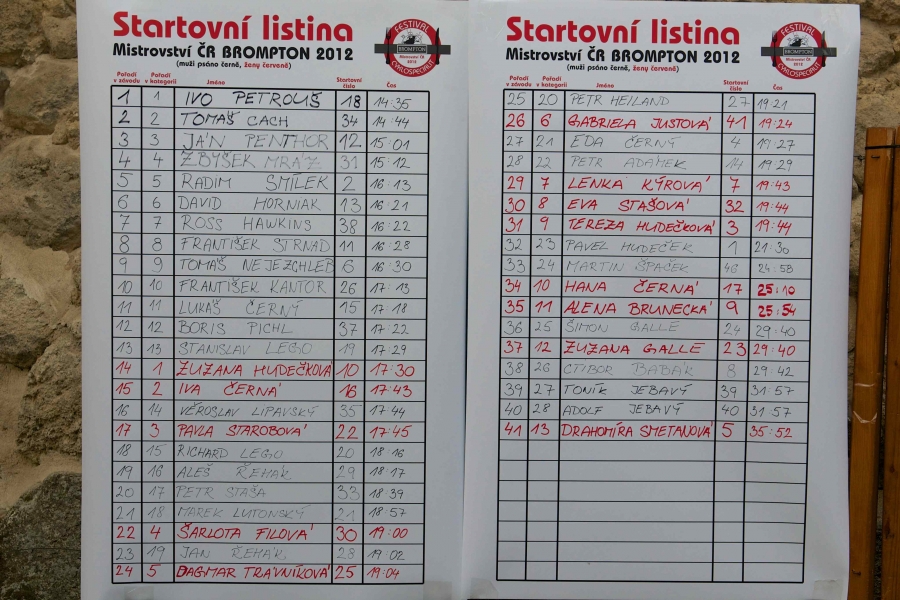 Startovní listina
Mistrovství ČR BROMPTON 2012
(muži psáno černě, ženy červeně)
FESTIVAL
BROMPTON
Mistrovství ČR
2012
CYKLOSPECIÁLŮ
Pořadí v závodu Pořadí v kategorii Jméno Startovní číslo Čas
1 1 IVO PETROUŠ 18 14:35
2 2 TOMÁŠ CACH 34 14:44
3 3 JÁN PENTHOR 12 15:01
4 4 ZBYŠEK MRÁZ 31 15:12
5 5 RADIM SMÍLEK 2 16:13
6 6 DAVID HORNIAK 13 16:21
7 7 ROSS HAWKINS 38 16:22
8 8 FRANTIŠEK STRNAD 11 16:28
9 9 TOMÁŠ NEJEZCHLEB 6 16:30
10 10 FRANTIŠEK KANTOR 26 17:13
11 11 LUKÁŠ ČERNÝ 15 17:18
12 12 BORIS PICHL 37 17:22
13 13 STANISLAV LEGO 19 17:29
14 1 ZUZANA HUDEČKOVÁ 10 17:30
15 2 IVA ČERNÁ 16 17:43
16 14 VĚROSLAV LIPAVSKÝ 35 17:44
17 3 PAVLA STAROBOVÁ 22 17:45
18 15 RICHARD LEGO 20 18:16
19 16 ALEŠ ŘEHÁK 29 18:17
20 17 PETR STAŠA 33 18:39
21 18 MAREK LUTONSKÝ 21 18:57
22 4 ŠARLOTA FILOVÁ 30 19:00
23 19 JAN ŘEHÁK 28 19 02
24 5 DAGMAR TRÁVNÍKOVÁ 25 19:04
Startovní listina
Mistrovství ČR BROMPTON 2012
(muži psáno černě, ženy červeně)
FESTIVAL
BROMPTON
Mistrovství ČR
2012
CYKLOSPECIÁLŮ
Pořadí v závodu Pořadí v kategorii Jméno Startovní číslo Čas
25 20 PETR HEILAND 27 19:21
26 6 GABRIELA JUSTOVÁ 41 19:24
27 21 EDA ČERNÝ 4 19:27
28 22 PETR ADÁMEK 14 19:29
29 7 LENKA KÝROVÁ 7 19:43
30 8 EVA STAŠOVÁ 32 19:44
31 9 TEREZA HUDEČKOVÁ 3 19:44
32 23 PAVEL HUDEČEK 1 21:30
33 24 MARTIN ŠPAČEK 46 24:58
34 10 HANA ČERNÁ 17 25:10
35 11 ALENA BRUNECKÁ 9 25:54
36 25 ŠIMON GALLE 24 29:40
37 12 ZUZANA GALLE 23 29:40
38 26 CTIBOR BABÁK 8 29:42
39 27 TONÍK JEBAVÝ 39 31:57
40 28 ADOLF JEBAVÝ 40 31:57
41 13 DRAHOMÍRA SMETANOVÁ 5 35:52